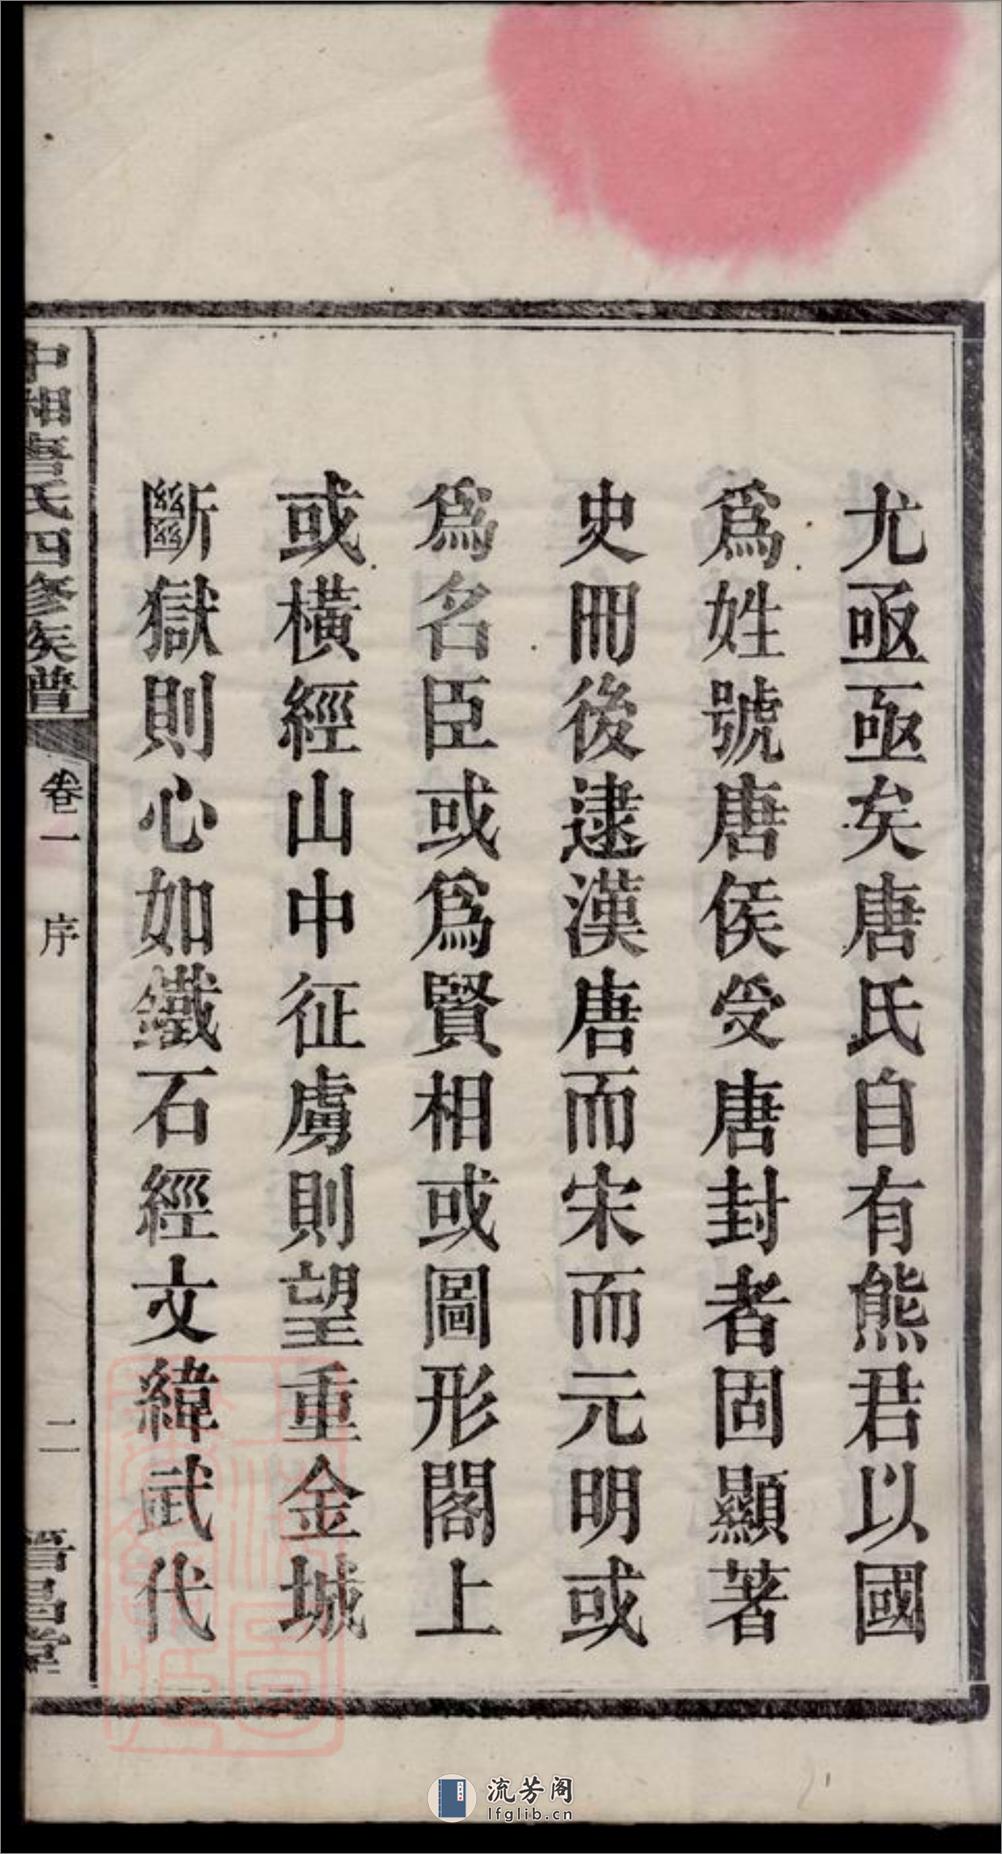 尤亟亟矣唐氏自有熊君以國
爲姓號唐侯受唐封者固顯著
史冊後逮漢唐而宋而元明或
爲名臣或爲賢相或圖形閣上
或橫經山中征虜則望重金城
斷獄則心如鐵石經文緯武代
中湘唐氏四修族譜
卷一
序
二
晉昌堂
流芳阁
lfglib.cn